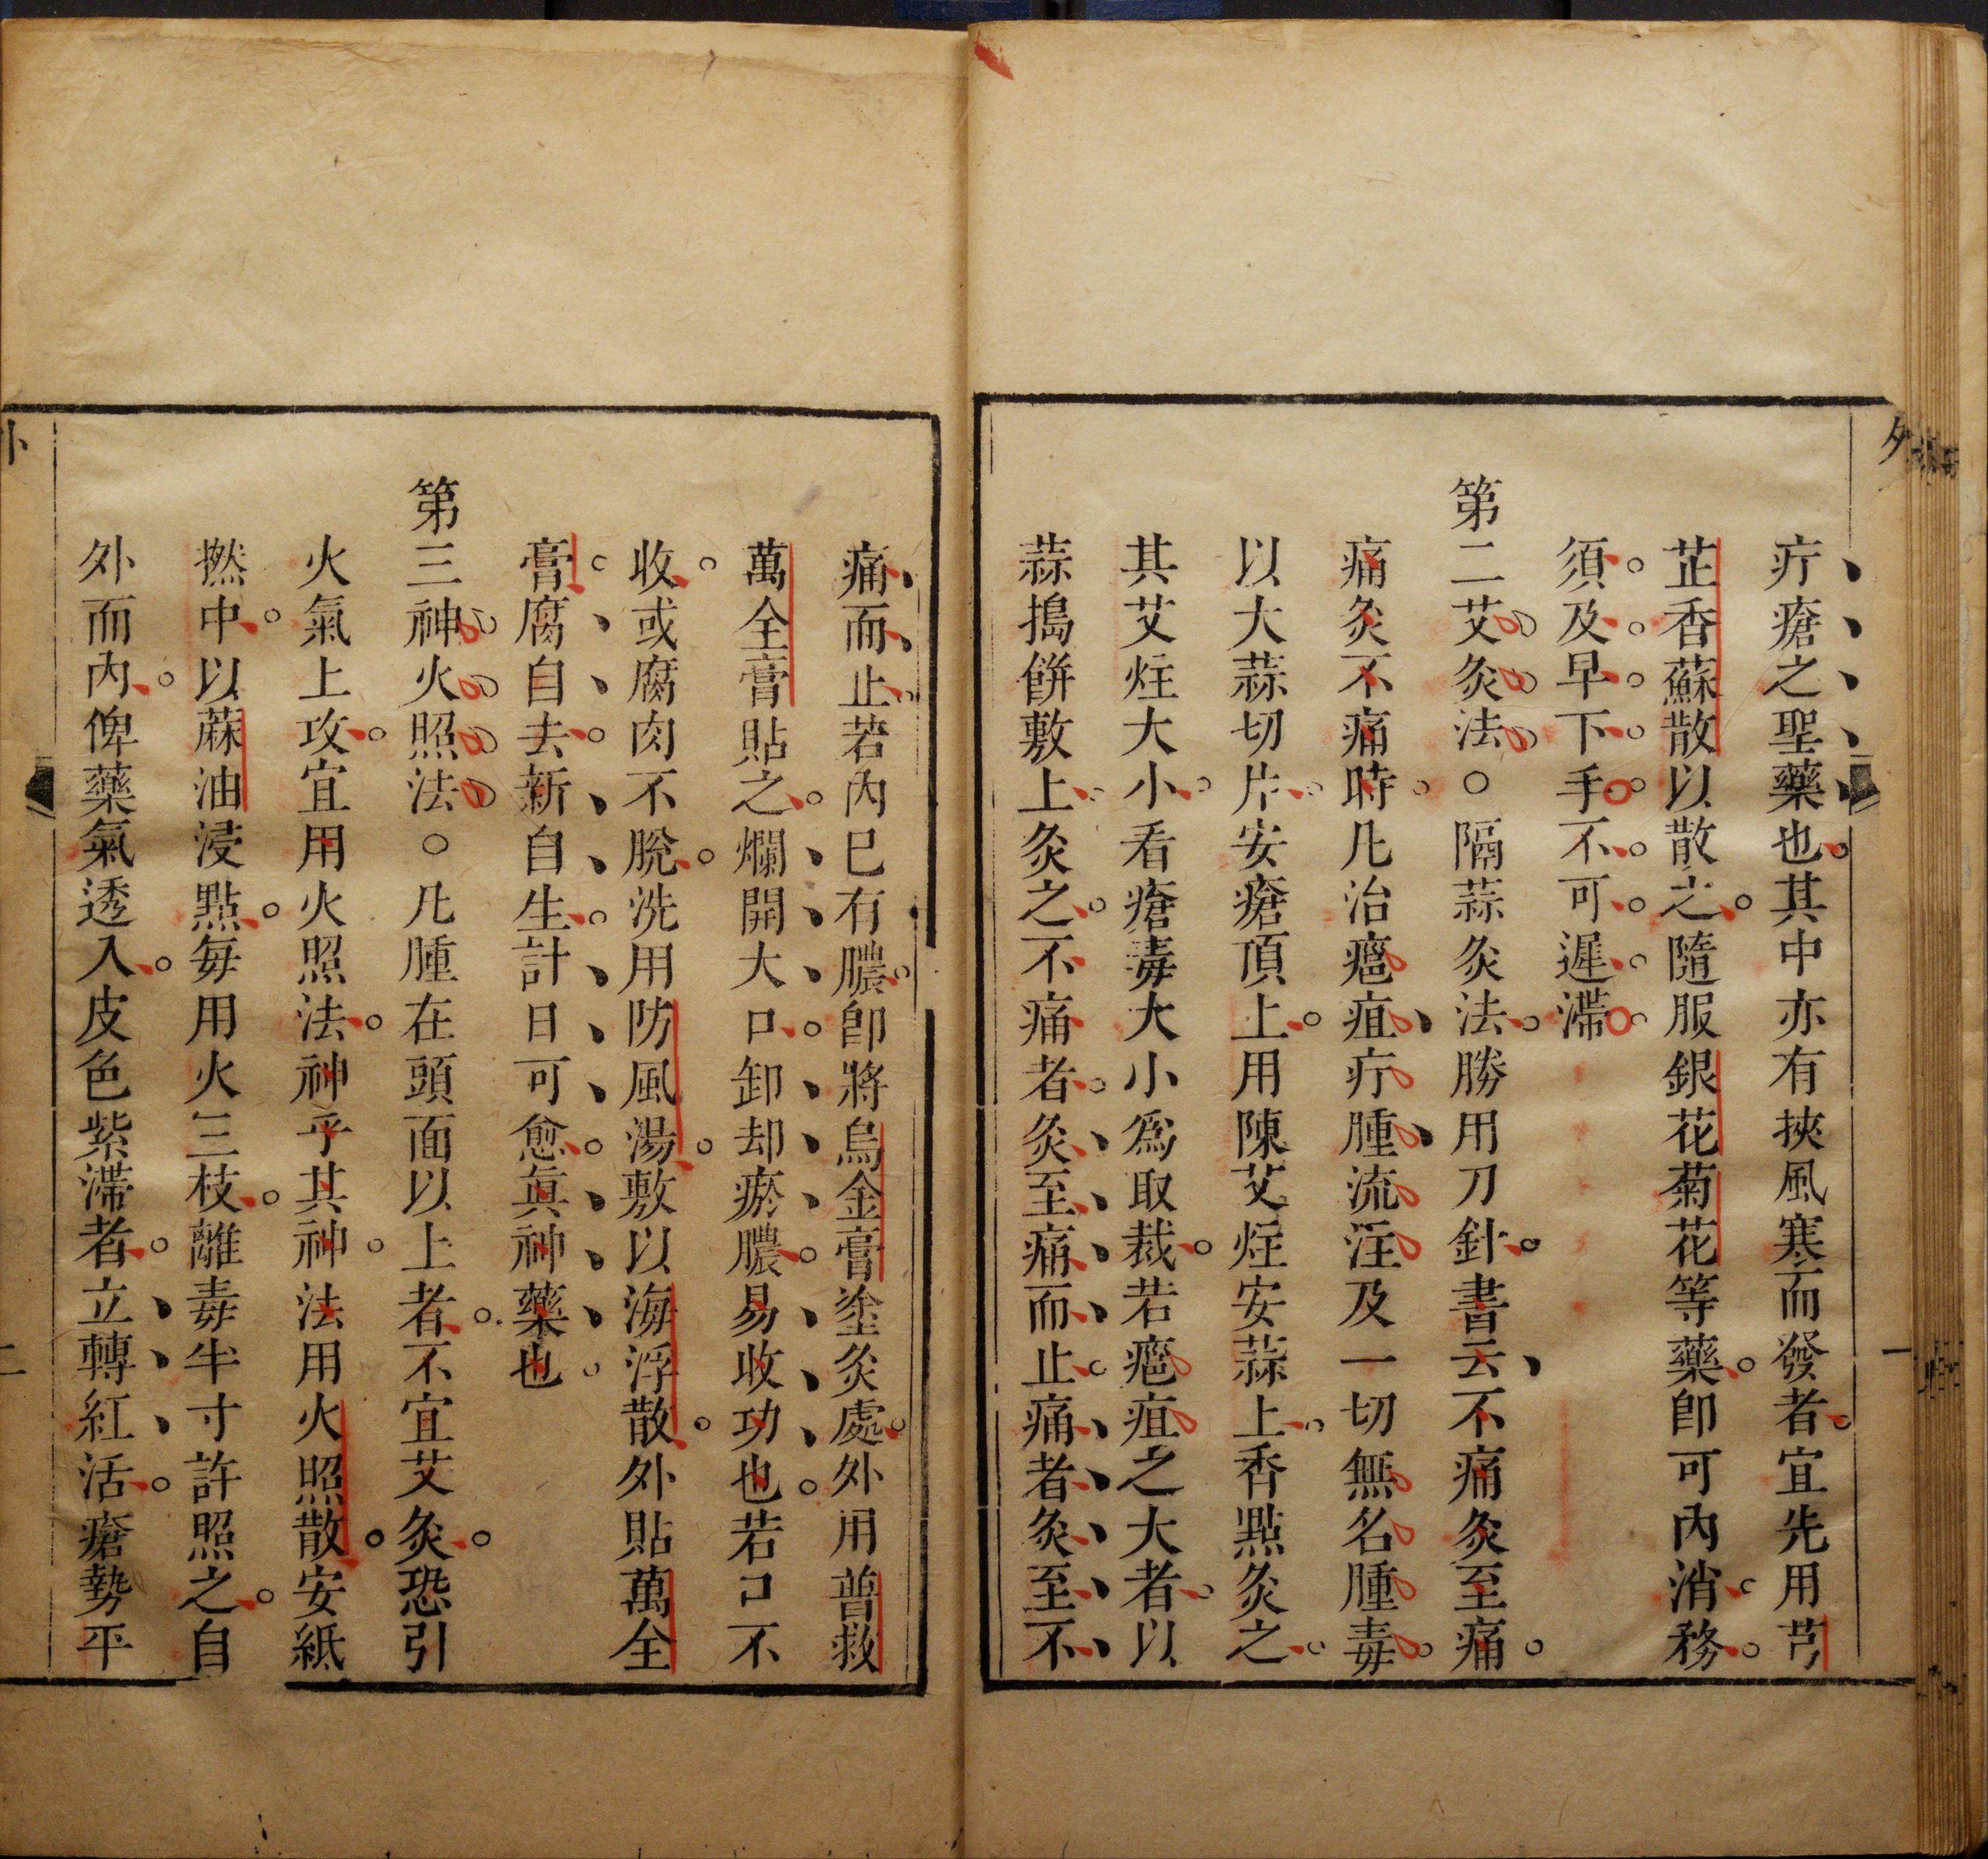 疔瘡之聖藥也其中亦有挾風寒而發者宜先用芎
芷香蘇散以散之隨服銀花菊花等藥卽可內消務
須及早下手不可遲滯
第二艾灸法○隔蒜灸法勝用刀針書云不痛灸至痛
痛灸不痛時凡治癰疽疔腫流注及一切無名腫毒
以大蒜切片安瘡頂上用陳艾炷安蒜上香點灸之
其艾炷大小看瘡毒大小爲取裁若癰疽之大者以
蒜搗餅敷上灸之不痛者灸至痛而止痛者灸至不
痛而止若內已有膿卽將烏金膏塗灸處外用普救
萬全膏貼之爛開大口卸却瘀膿易收功也若口不
收或腐肉不脫洗用防風湯敷以海浮散外貼萬全
膏腐自去新自生計日可愈眞神藥也
第三神火照法○凡腫在頭面以上者不宜艾灸恐引
火氣上攻宜用火照法神乎其神法用火照散安紙
撚中以蔴油浸點每用火三枝離毒半寸許照之自
外而內俾藥氣透入皮色紫滯者立轉紅活瘡勢平